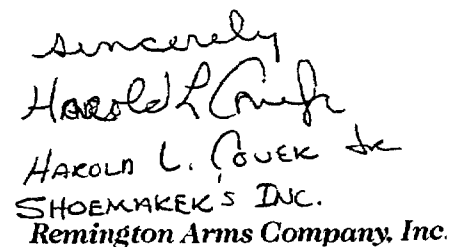 sincerely
Harold L
HAROLD L. COUEK JR
SHOEMAKER'S INC.
Remington Arms Company, Inc.